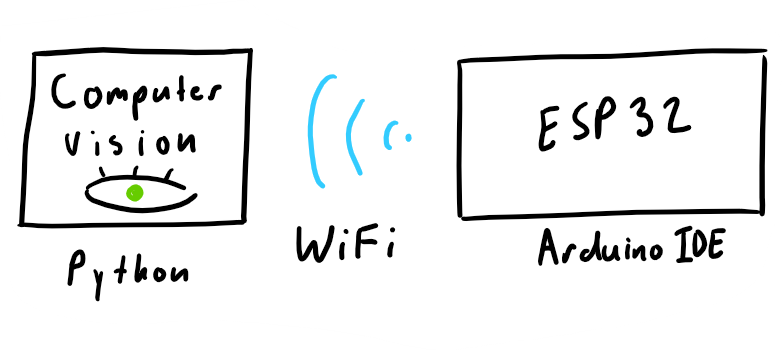 Computer
Vision
Python
WiFi
ESP32
Arduino IDE